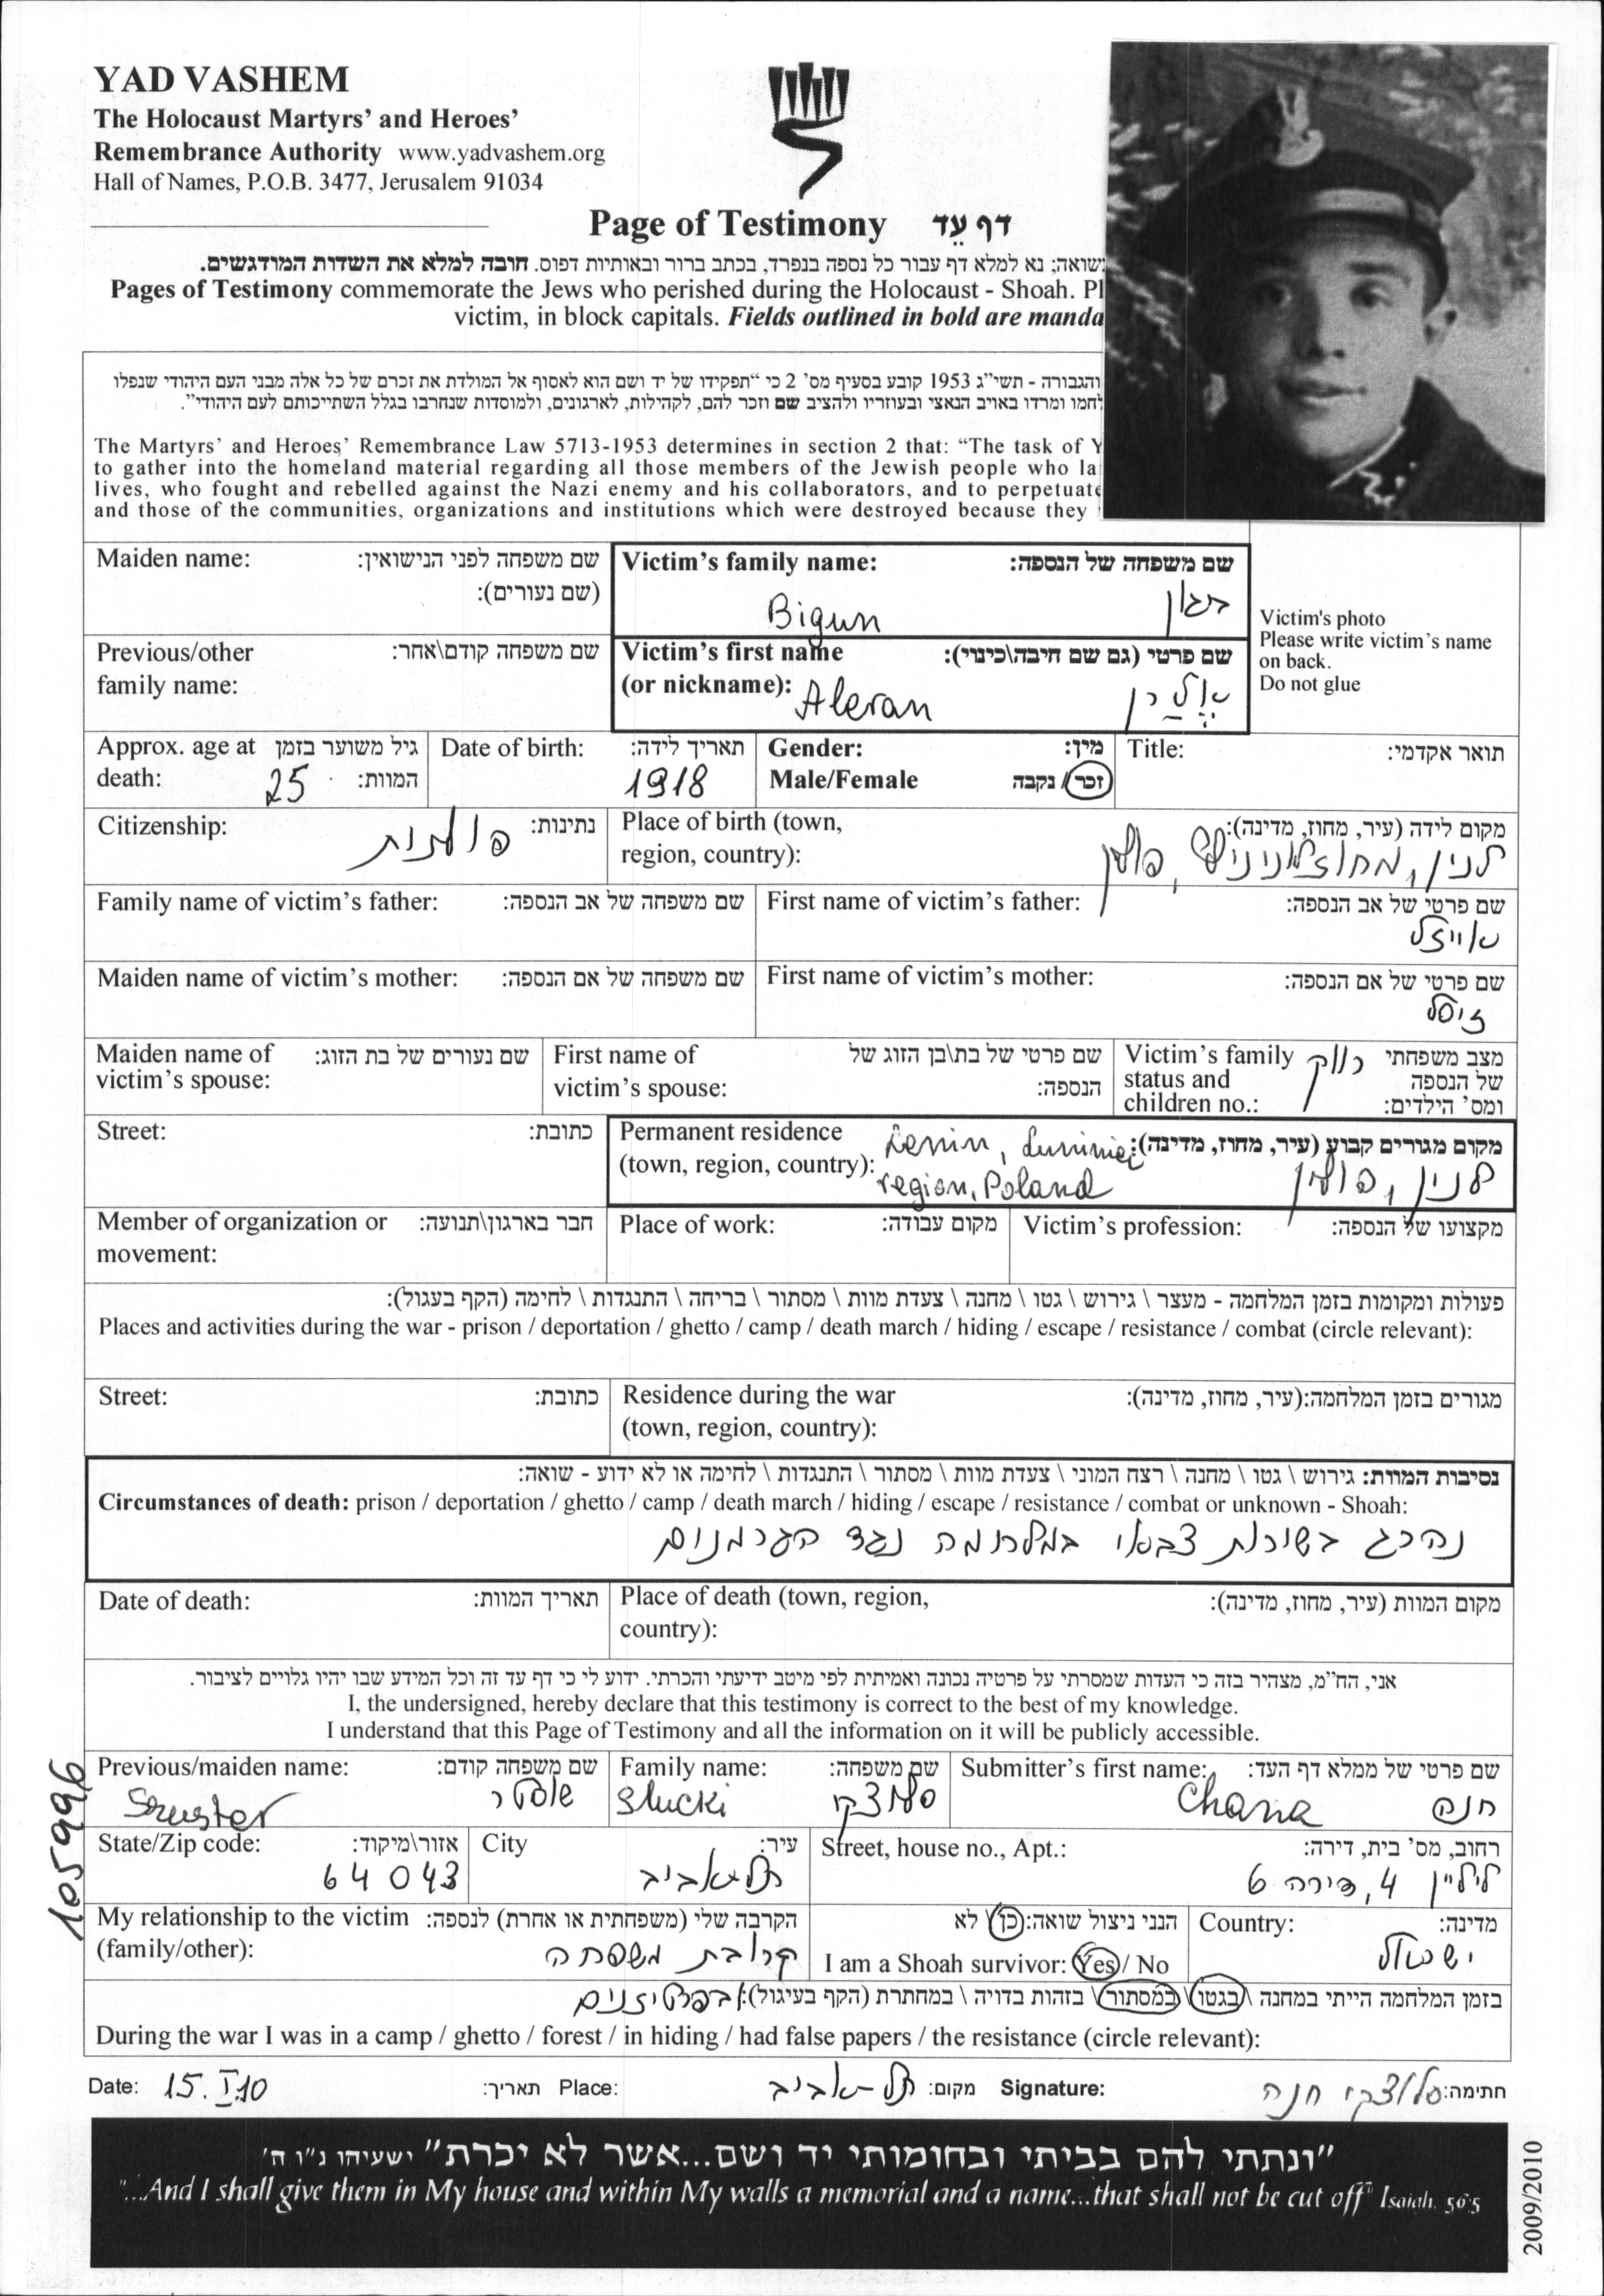 YAD VASHEM
The Holocaust Martyrs' and Heroes'
Remembrance Authority www.yadvashem.org
Hall of Names, P.O.B. 3477, Jerusalem 91034
Page of Testimony דף עֵד
שואה; נא למלא דף עבור כל נספה בנפרד, בכתב ברור ובאותיות דפוס. חובה למלא את השדות המודגשים.
Pages of Testimony commemorate the Jews who perished during the Holocaust - Shoah. Pl
victim, in block capitals. Fields outlined in bold are manda
והגבורה - תשי"ג 1953 קובע בסעיף מס' 2 כי "תפקידו של יד ושם הוא לאסוף אל המולדת את זכרם של כל אלה מבני העם היהודי שנפלו
לחמו ומרדו באויב הנאצי ובעוזריו ולהציב שם וזכר להם, לקהילות, לארגונים, ולמוסדות שנחרבו בגלל השתייכותם לעם היהודי".
The Martyrs' and Heroes' Remembrance Law 5713-1953 determines in section 2 that: "The task of Y
to gather into the homeland material regarding all those members of the Jewish people who la
lives, who fought and rebelled against the Nazi enemy and his collaborators, and to perpetuate
and those of the communities, organizations and institutions which were destroyed because they
Maiden name: שם משפחה לפני הנישואין:
(שם נעורים):
Victim's family name: שם משפחה של הנספה:
Bigun בגון
Victim's photo
Please write victim's name
on back.
Do not glue
Previous/other שם משפחה קודם\אחר:
family name:
Victim's first name שם פרטי (גם שם חיבה\כינוי):
(or nickname): Aleran
Approx. age at גיל משוער בזמן
death: 25 המוות:
Date of birth: תאריך לידה:
1918
Gender: מין:
Male/Female זכר / נקבה
Title: תואר אקדמי:
Citizenship: נתינות: פולנית
Place of birth (town, מקום לידה (עיר, מחוז, מדינה):
region, country): לנין, מחוז לוניניץ, פולין
Family name of victim's father: שם משפחה של אב הנספה:
First name of victim's father: שם פרטי של אב הנספה:
אייזל
Maiden name of victim's mother: שם משפחה של אם הנספה:
First name of victim's mother: שם פרטי של אם הנספה:
זיסל
Maiden name of שם נעורים של בת הזוג:
victim's spouse:
First name of שם פרטי של בת\בן הזוג של
victim's spouse: הנספה:
Victim's family רווק מצב משפחתי
status and של הנספה
children no.: ומס' הילדים:
Street: כתובת:
Permanent residence Lenin, Luniniec מקום מגורים קבוע (עיר, מחוז, מדינה):
(town, region, country): region, Poland לנין, פולין
Member of organization or חבר בארגון\תנועה:
movement:
Place of work: מקום עבודה:
Victim's profession: מקצועו של הנספה:
פעולות ומקומות בזמן המלחמה - מעצר \ גירוש \ גטו \ מחנה \ צעדת מוות \ מסתור \ בריחה \ התנגדות \ לחימה (הקף בעגול):
Places and activities during the war - prison / deportation / ghetto / camp / death march / hiding / escape / resistance / combat (circle relevant):
Street: כתובת:
Residence during the war מגורים בזמן המלחמה:(עיר, מחוז, מדינה):
(town, region, country):
נסיבות המוות: גירוש \ גטו \ מחנה \ רצח המוני \ צעדת מוות \ מסתור \ התנגדות \ לחימה או לא ידוע - שואה:
Circumstances of death: prison / deportation / ghetto / camp / death march / hiding / escape / resistance / combat or unknown - Shoah:
נהרג בשורות צבאו במלחמה נגד הגרמנים
Date of death: תאריך המוות:
Place of death (town, region, מקום המוות (עיר, מחוז, מדינה):
country):
אני, הח"מ, מצהיר בזה כי העדות שמסרתי על פרטיה נכונה ואמיתית לפי מיטב ידיעתי והכרתי. ידוע לי כי דף עד זה וכל המידע שבו יהיו גלויים לציבור.
I, the undersigned, hereby declare that this testimony is correct to the best of my knowledge.
I understand that this Page of Testimony and all the information on it will be publicly accessible.
Previous/maiden name: שם משפחה קודם:
Szuster שוסטר
Family name: שם משפחה:
Slucki סלוצקי
Submitter's first name: שם פרטי של ממלא דף העד:
Chana חנה
State/Zip code: אזור\מיקוד:
64043
City עיר:
תל-אביב
Street, house no., Apt.: רחוב, מס' בית, דירה:
לילין 4, דירה 6
My relationship to the victim הקרבה שלי (משפחתית או אחרת) לנספה:
(family/other): קרובת משפחה
הנני ניצול שואה: כן / לא
I am a Shoah survivor: Yes / No
Country: מדינה:
ישראל
בזמן המלחמה הייתי במחנה \ בגטו \ במסתור \ בזהות בדויה \ במחתרת (הקף בעיגול): בפרטיזנים
During the war I was in a camp / ghetto / forest / in hiding / had false papers / the resistance (circle relevant):
Date: 15.I.10 תאריך: Place: תל-אביב מקום: Signature: סלוצקי חנה חתימה:
"ונתתי להם בביתי ובחומותי יד ושם...אשר לא יכרת" ישעיהו נ"ו ה'
"...And I shall give them in My house and within My walls a memorial and a name...that shall not be cut off" Isaiah, 56:5
105996
2009/2010